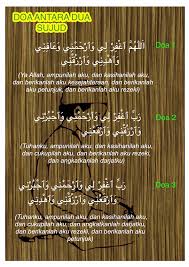 DOA ANTARA DUA
SUJUD
اَللّٰهُمَّ اغْفِرْ لِي وَارْحَمْنِي وَعَافِنِي
وَاهْدِنِي وَارْزُقْنِي
Doa 1
(Ya Allah, ampunilah aku, dan kasihanilah aku,
dan berikanlah aku kesejahteraan, dan berikanlah
aku petunjuk, dan berikanlah aku rezeki)
رَبِّ اغْفِرْ لِي وَارْحَمْنِي وَاجْبُرْنِي
وَارْزُقْنِي وَارْفَعْنِي
Doa 2
(Tuhanku, ampunilah aku, dan kasihanilah aku,
dan cukupilah aku, dan berikanlah aku rezeki,
dan angkatkanlah darjatku)
رَبِّ اغْفِرْ لِي وَارْحَمْنِي وَاجْبُرْنِي
Doa 3
(Tuhanku, ampunilah aku, dan kasihanilah aku,
dan cukupilah aku, dan angkatkanlah darjatku,
dan berikanlah aku rezeki, dan berikanlah aku
petunjuk)